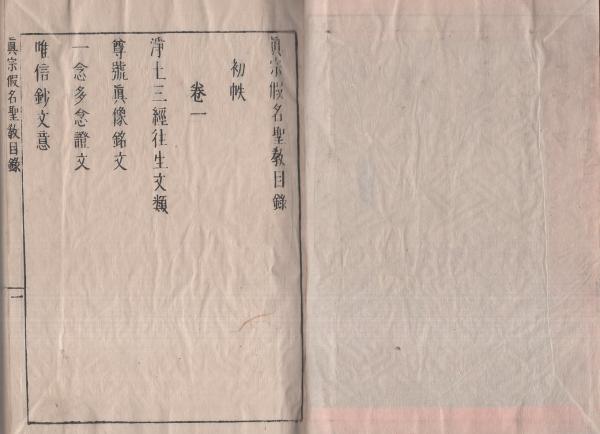 眞宗假名聖敎目錄
初帙
卷一
淨土三經往生文類
尊號眞像銘文
一念多念證文
唯信鈔文意
眞宗假名聖敎目錄
一